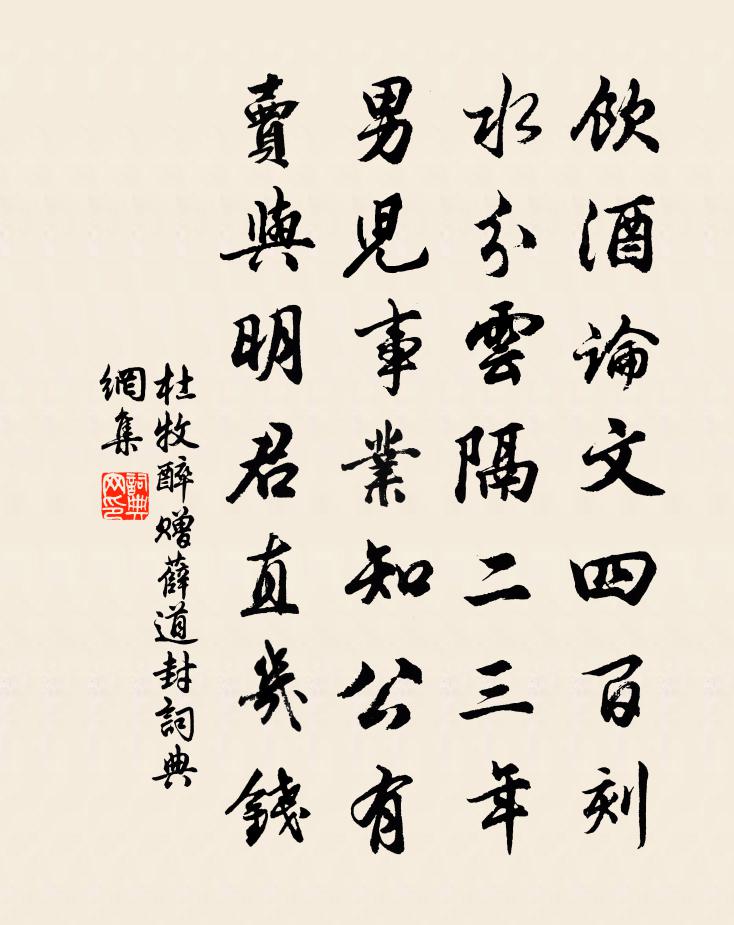 飲酒論文四百刻
水分雲隔二三年
男兒事業知公有
賣與明君直幾錢
杜牧醉贈薛道封詞典
網集
詞典
网印